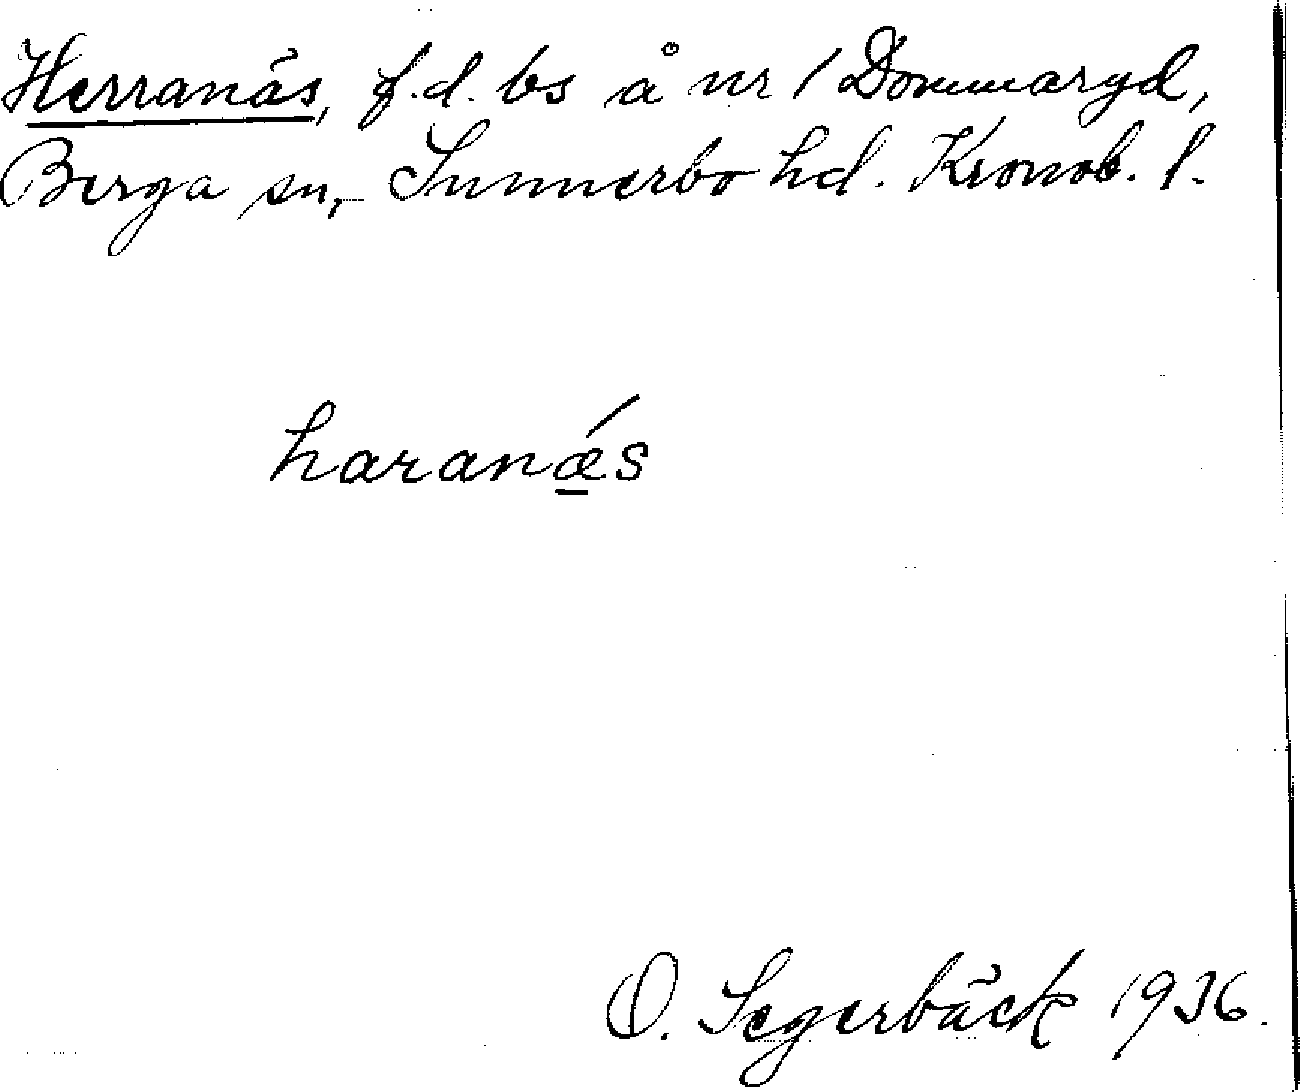 Herranäs, f.d. bs å nr 1 Dommaryd,
Berga sn, Sunnerbo hd. Kronob. l.
haranǽs
O. Segerbäck 1936.